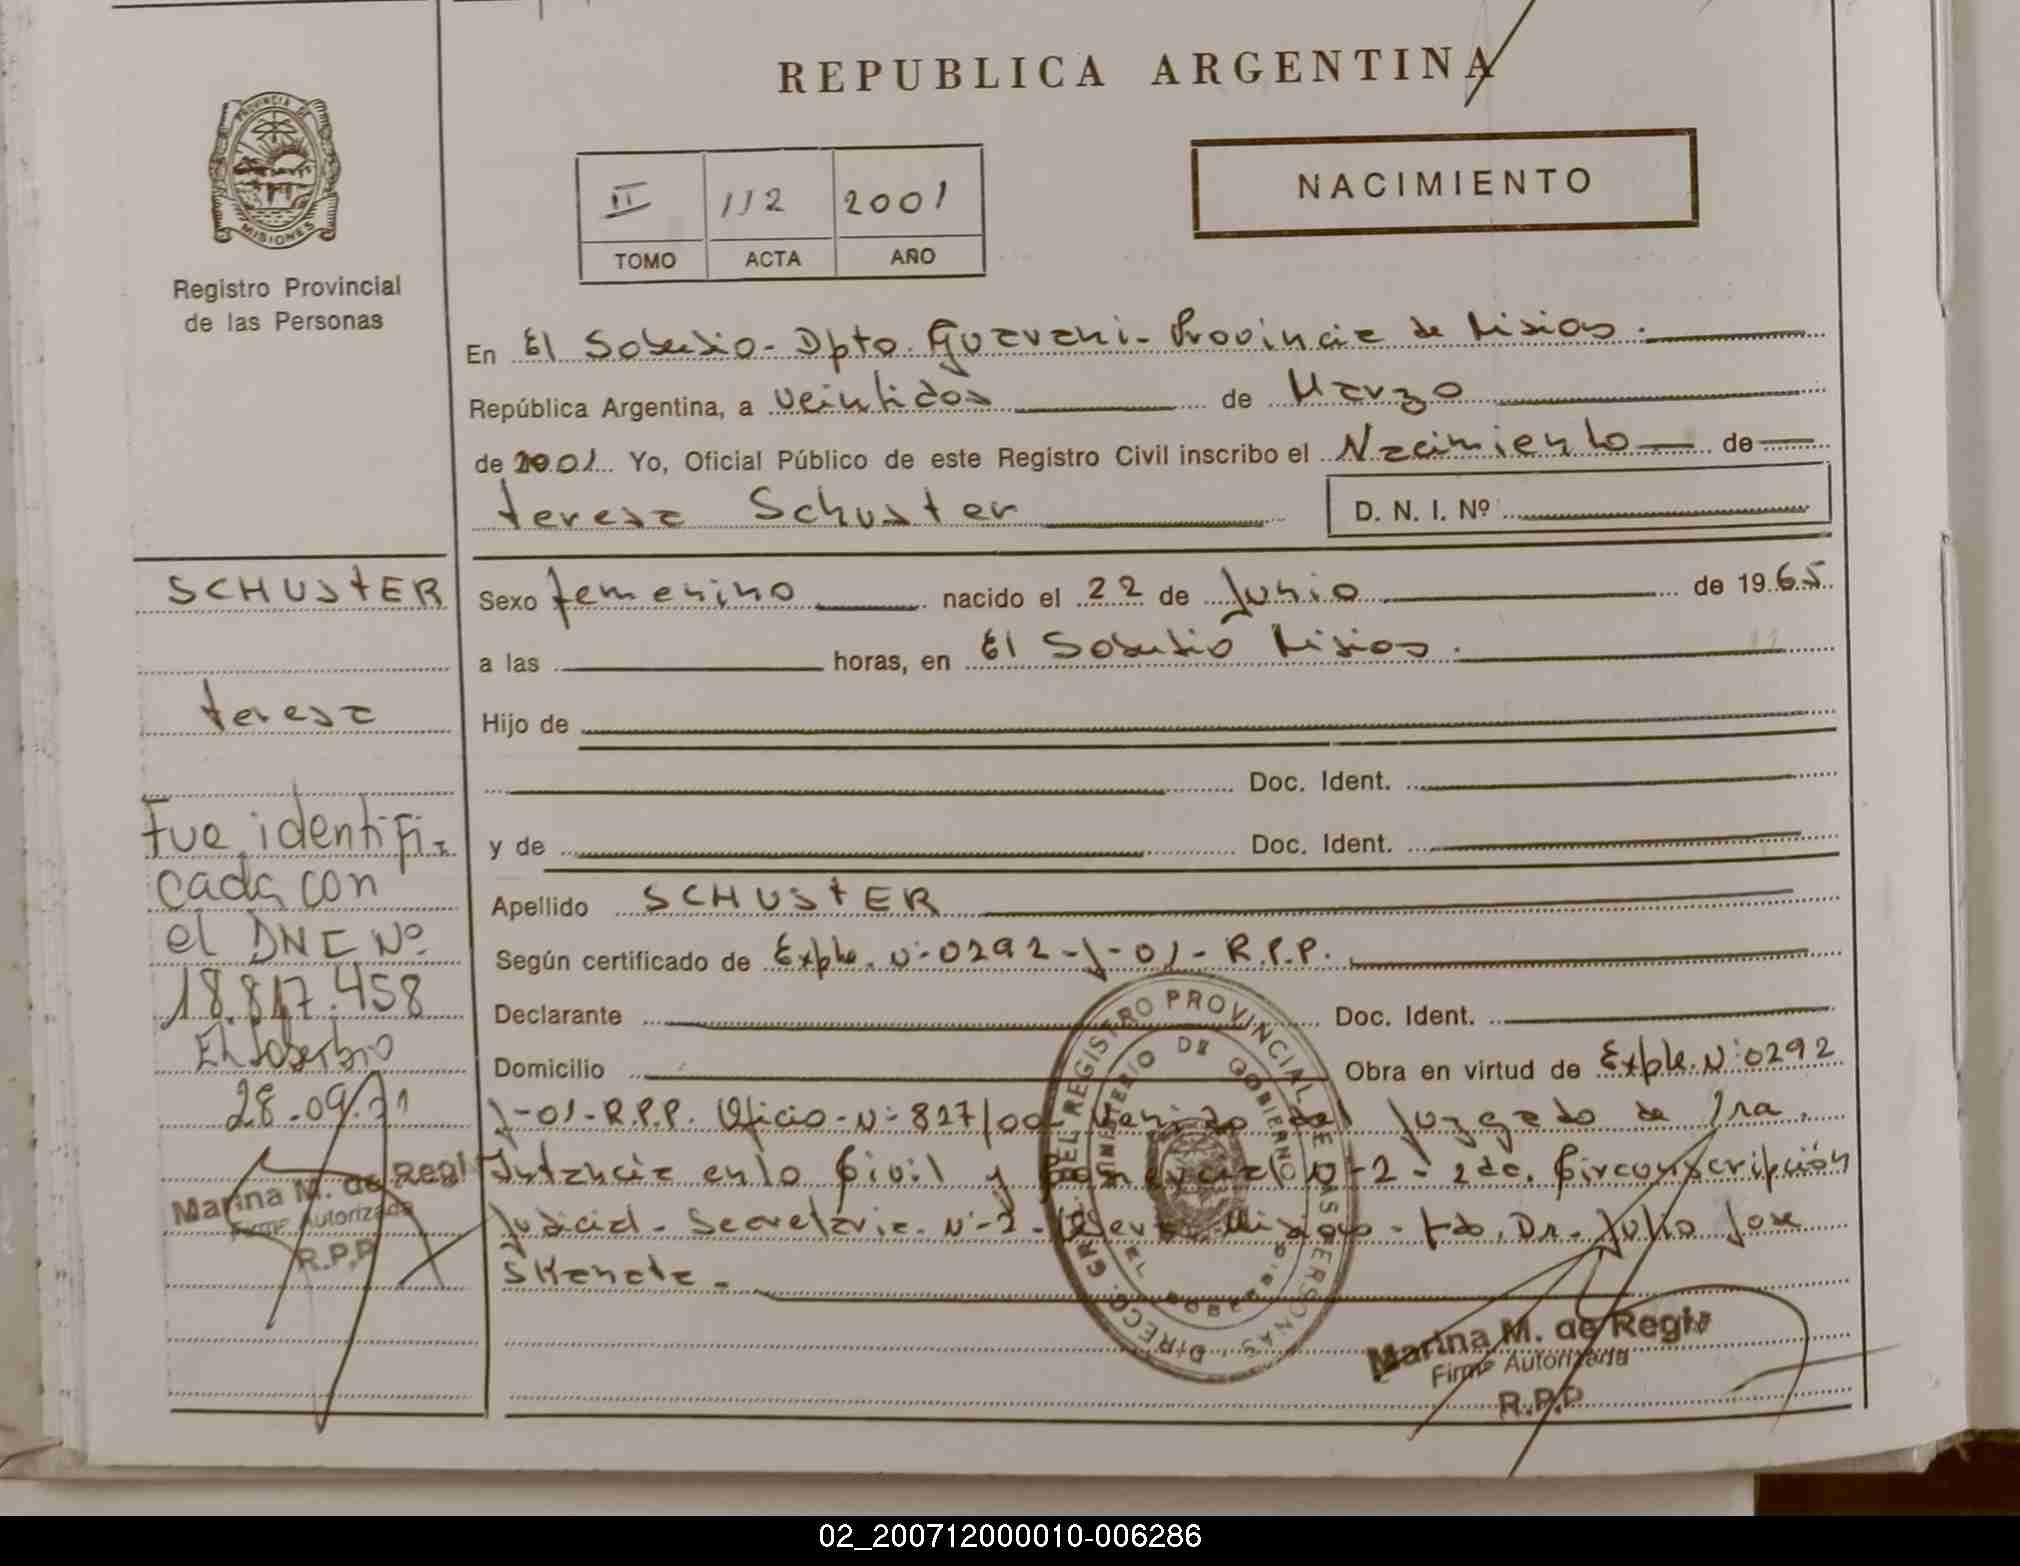 REPUBLICA ARGENTINA
PROVINCIA DE
MISIONES
Registro Provincial
de las Personas
II 112 2001
TOMO ACTA AÑO
NACIMIENTO
En El Soberbio - Dpto. Guarani - Provincia de Misiones.
República Argentina, a veintidos de Marzo
de 2001 Yo, Oficial Público de este Registro Civil inscribo el Nacimiento de
teresa Schuster D. N. I. Nº
SCHUSTER
teresa
Fue identifi-
cada con
el DNI Nº
18.817.458
El Soberbio
28-09-01
Marina M. de Regi
Firma Autorizada
R.P.P
Sexo femenino nacido el 22 de Junio de 1965
a las horas, en El Soberbio Misiones.
Hijo de
Doc. Ident.
y de Doc. Ident.
Apellido SCHUSTER
Según certificado de Expte. Nº 0292-J-01-R.P.P.
Declarante Doc. Ident.
Domicilio Obra en virtud de Expte. Nº 0292
J-01-R.P.P. Oficio-Nº 827/00 del Juzgado de 1ra.
Instancia en lo Civil y Comercial Nº 2 - 2da. Circunscripción
Judicial - Secretaria Nº 2 - Oberá Misiones - fdo. Dr. Julio Jose
DIRECC. GRAL. DEL REGISTRO PROVINCIAL DE LAS PERSONAS
MINISTERIO DE GOBIERNO
EL SOBERBIO
Marina M. de Regi
Firma Autorizada
R.P.P
02_200712000010-006286